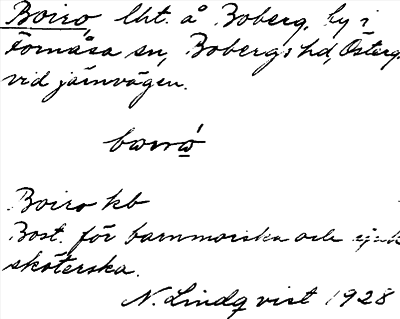 Boiro, lht. å Boberg, by i
Fornåsa sn, Bobergs hd, Österg.
vid järnvägen.
Boiro kb
Bost. för barnmorska och sjuk
sköterska.
N. Lindqvist 1928